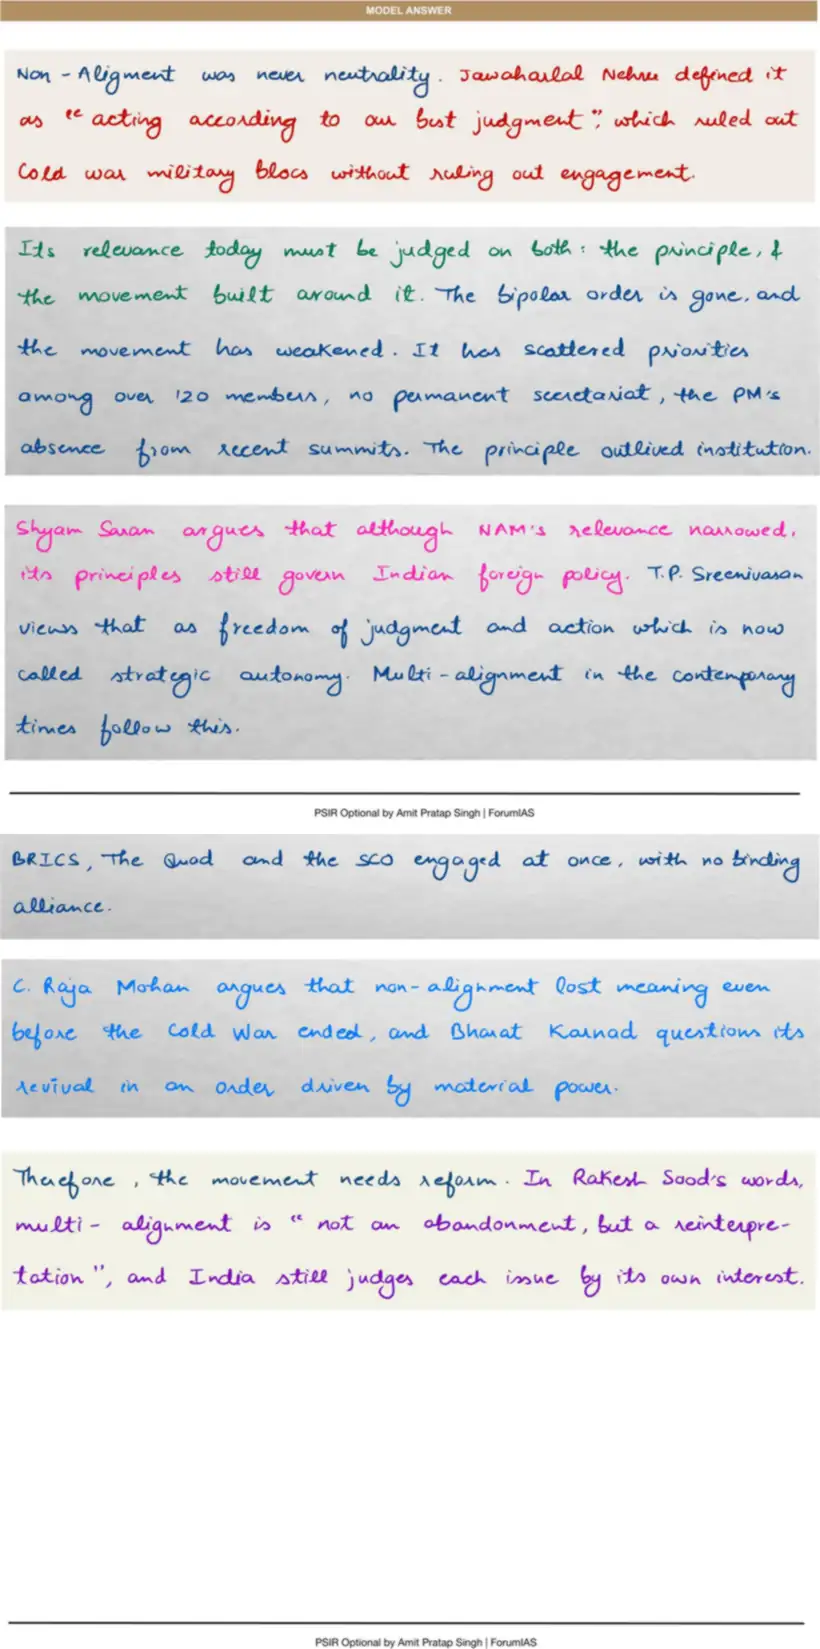 MODEL ANSWER
Non-Aligment was never neutrality. Jawaharlal Nehru defined it
as "acting according to our best judgment", which ruled out
Cold war military blocs without ruling out engagement.
Its relevance today must be judged on both: the principle, &
the movement built around it. The bipolar order is gone, and
the movement has weakened. It has scattered priorities
among over 120 members, no permanent secretariat, the PM's
absence from recent summits. The principle outlived institution.
Shyam Saran argues that although NAM's relevance narrowed,
its principles still govern Indian foreign policy. T.P. Sreenivasan
views that as freedom of judgment and action which is now
called strategic autonomy. Multi-alignment in the contemporary
times follow this.
PSIR Optional by Amit Pratap Singh | ForumIAS
BRICS, The Quad and the SCO engaged at once, with no binding
alliance.
C. Raja Mohan argues that non-alignment lost meaning even
before the Cold War ended, and Bharat Karnad questions its
revival in an order driven by material power.
Therefore, the movement needs reform. In Rakesh Sood's words,
multi- alignment is "not an abandonment, but a reinterpre-
tation", and India still judges each issue by its own interest.
PSIR Optional by Amit Pratap Singh | ForumIAS